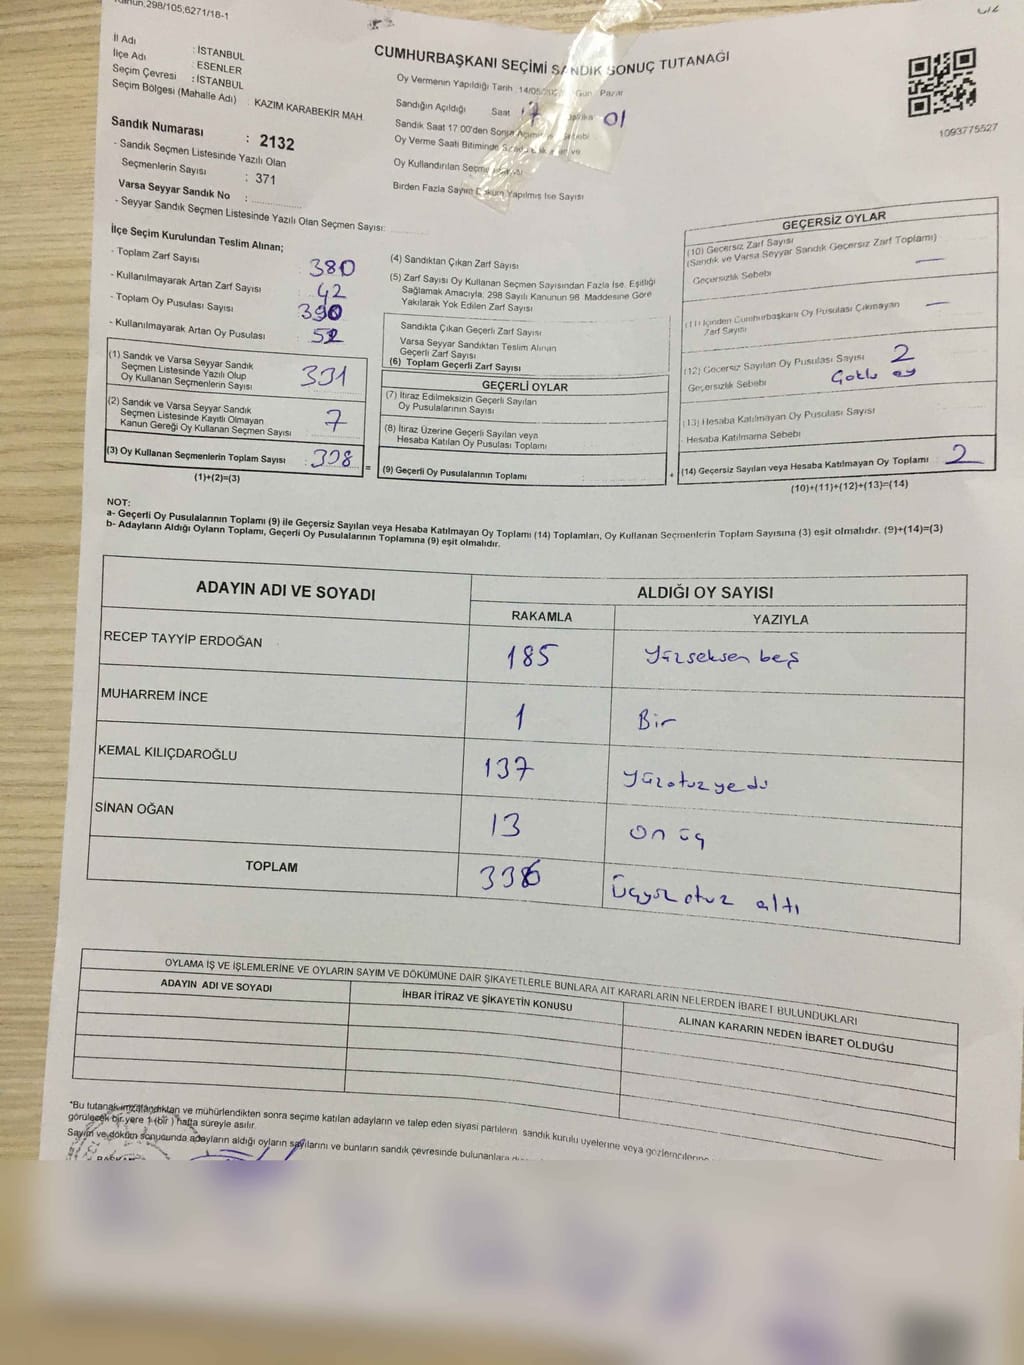 298/105,6271/18-1
İl Adı : İSTANBUL
İlçe Adı : ESENLER
Seçim Çevresi : İSTANBUL
Seçim Bölgesi (Mahalle Adı) : KAZIM KARABEKİR MAH.
Sandık Numarası : 2132
- Sandık Seçmen Listesinde Yazılı Olan
Seçmenlerin Sayısı : 371
Varsa Seyyar Sandık No :
- Seyyar Sandık Seçmen Listesinde Yazılı Olan Seçmen Sayısı:
CUMHURBAŞKANI SEÇİMİ SANDIK SONUÇ TUTANAĞI
Oy Vermenin Yapıldığı Tarih 14/05 Gün Pazar
Sandığın Açıldığı Saat 17 Dakika 01
Sandık Saat 17:00'den Sonra
Oy Verme Saati Bitiminde
Oy Kullandırılan
Birden Fazla Sayım Döküm Yapılmış İse Sayısı
1093775527
İlçe Seçim Kurulundan Teslim Alınan;
- Toplam Zarf Sayısı 380
- Kullanılmayarak Artan Zarf Sayısı : 42
- Toplam Oy Pusulası Sayısı 390
- Kullanılmayarak Artan Oy Pusulası : 52
(1) Sandık ve Varsa Seyyar Sandık
Seçmen Listesinde Yazılı Olup
Oy Kullanan Seçmenlerin Sayısı 331
(2) Sandık ve Varsa Seyyar Sandık
Seçmen Listesinde Kayıtlı Olmayan
Kanun Gereği Oy Kullanan Seçmen Sayısı 7
(3) Oy Kullanan Seçmenlerin Toplam Sayısı : 338 =
(1)+(2)=(3)
(4) Sandıktan Çıkan Zarf Sayısı
(5) Zarf Sayısı Oy Kullanan Seçmen Sayısından Fazla İse, Eşitliği
Sağlamak Amacıyla; 298 Sayılı Kanunun 98. Maddesine Göre
Yakılarak Yok Edilen Zarf Sayısı
Sandıkta Çıkan Geçerli Zarf Sayısı
Varsa Seyyar Sandıktan Teslim Alınan
Geçerli Zarf Sayısı
(6) Toplam Geçerli Zarf Sayısı
GEÇERLİ OYLAR
(7) İtiraz Edilmeksizin Geçerli Sayılan
Oy Pusulalarının Sayısı
(8) İtiraz Üzerine Geçerli Sayılan veya
Hesaba Katılan Oy Pusulası Toplamı
(9) Geçerli Oy Pusulalarının Toplamı +
GEÇERSİZ OYLAR
(10) Geçersiz Zarf Sayısı
(Sandık ve Varsa Seyyar Sandık Geçersiz Zarf Toplamı) —
Geçersizlik Sebebi
(11) İçinden Cumhurbaşkanı Oy Pusulası Çıkmayan —
Zarf Sayısı
(12) Geçersiz Sayılan Oy Pusulası Sayısı 2
Geçersizlik Sebebi Çoklu oy
(13) Hesaba Katılmayan Oy Pusulası Sayısı
Hesaba Katılmama Sebebi
(14) Geçersiz Sayılan veya Hesaba Katılmayan Oy Toplamı : 2
(10)+(11)+(12)+(13)=(14)
NOT:
a- Geçerli Oy Pusulalarının Toplamı (9) ile Geçersiz Sayılan veya Hesaba Katılmayan Oy Toplamı (14) Toplamları, Oy Kullanan Seçmenlerin Toplam Sayısına (3) eşit olmalıdır. (9)+(14)=(3)
b- Adayların Aldığı Oyların Toplamı, Geçerli Oy Pusulalarının Toplamına (9) eşit olmalıdır.
ADAYIN ADI VE SOYADI ALDIĞI OY SAYISI
RAKAMLA YAZIYLA
RECEP TAYYİP ERDOĞAN 185 Yüzseksen beş
MUHARREM İNCE 1 Bir
KEMAL KILIÇDAROĞLU 137 Yüzotuzyedi
SİNAN OĞAN 13 On üç
TOPLAM 336 Üçyüz otuz altı
OYLAMA İŞ VE İŞLEMLERİNE VE OYLARIN SAYIM VE DÖKÜMÜNE DAİR ŞİKAYETLERLE BUNLARA AİT KARARLARIN NELERDEN İBARET BULUNDUKLARI
ADAYIN ADI VE SOYADI İHBAR İTİRAZ VE ŞİKAYETİN KONUSU ALINAN KARARIN NEDEN İBARET OLDUĞU
*Bu tutanak imzalandıktan ve mühürlendikten sonra seçime katılan adayların ve talep eden siyasi partilerin sandık kurulu üyelerine veya gözlemcilerine
görülecek bir yere 1 (bir) hafta süreyle asılır.
Sayım ve döküm sonucunda adayların aldığı oyların sayılarını ve bunların sandık çevresinde bulunanlara
BAŞKAN